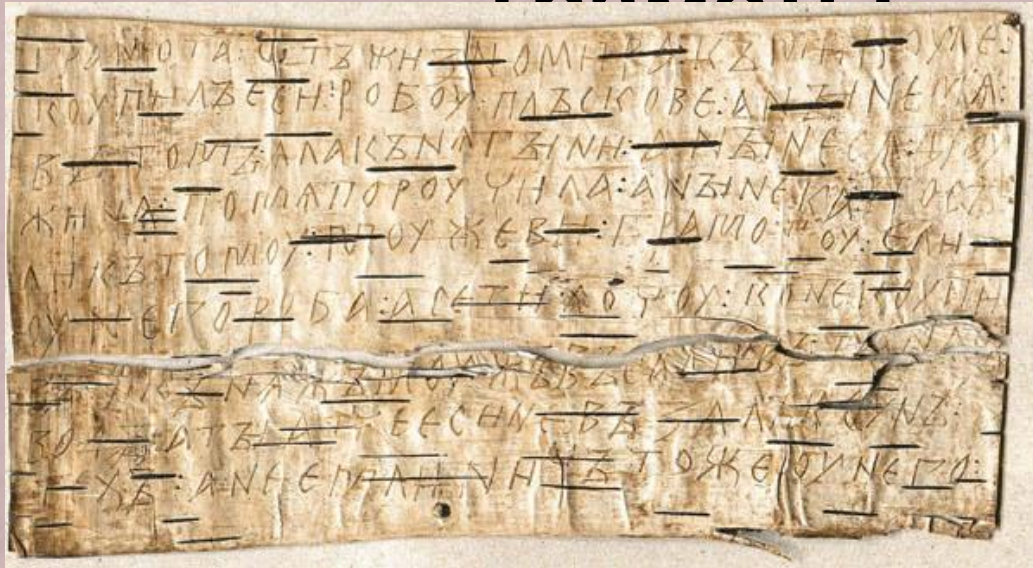 ГРАМОТА : ѠТЪ ЖИЗНОМИРА : КЪ МИКОУЛЕ :
КОУПИЛЪ ЕСИ : РОБОУ : ПЛЪСКОВЕ : А НЫНЕ МѦ :
ВЪ ТОМЪ : ѦЛА КЪНѦГЫНИ : А НЫНЕ СѦ ДРОУ
ЖИНА : ПО МѦ ПОРОУЧИЛА : А НЫНЕ КА : ПОСЪ
ЛИ КЪ ТОМОУ : МОУЖЕВИ : ГРАМОТОУ : Е ЛИ
ОУ НЕГО РОБА : А СЕ ТИ ХОЧОУ : КОНЕ КОУПИ
МОУЖЪ ВЪСА
ВОДЫ : А ТЫ АТЧЕ ЕСИ НЕ ВЪЗАЛЪ КОУНЪ :
ТЕХЪ : А НЕ ЕМЛИ : НИЧЪТО ЖЕ ОУ НЕГО :